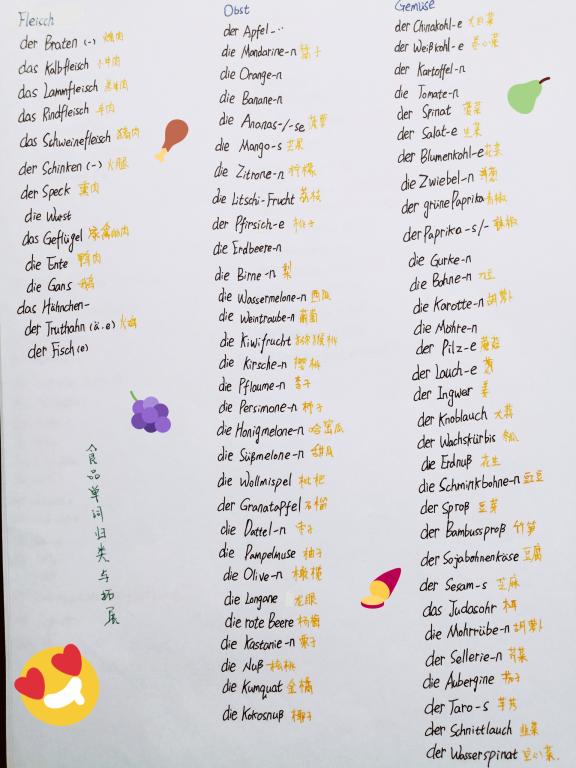 Fleisch
der Braten (-) 烤肉
das Kalbfleisch 小牛肉
das Lammfleisch 羔羊肉
das Rindfleisch 牛肉
das Schweinefleisch 猪肉
der Schinken (-) 火腿
der Speck 熏肉
die Wurst
das Geflügel 家禽的肉
die Ente 鸭肉
die Gans 鹅
das Hähnchen-
der Truthahn (ä.e) 火鸡
der Fisch(e)
食品单词归类与拓展
Obst
der Apfel-··
die Mandarine-n 橘子
die Orange-n
die Banane-n
die Ananas-/-se 菠萝
die Mango-s 芒果
die Zitrone-n 柠檬
die Litschi-Frucht 荔枝
der Pfirsich-e 桃子
die Erdbeere-n
die Birne-n 梨
die Wassermelone-n 西瓜
die Weintraube-n 葡萄
die Kiwifrucht 猕猴桃
die Kirsche-n 樱桃
die Pflaume-n 李子
die Persimone-n 柿子
die Honigmelone-n 哈密瓜
die Süßmelone-n 甜瓜
die Wollmispel 枇杷
der Granatapfel 石榴
die Dattel-n 枣子
die Pampelmuse 柚子
die Olive-n 橄榄
die Longane 龙眼
die rote Beere 杨梅
die Kastanie-n 栗子
die Nuß 核桃
die Kumquat 金橘
die Kokosnuß 椰子
Gemüse
der Chinakohl-e 大白菜
der Weißkohl-e 卷心菜
der Kartoffel-n
die Tomate-n
der Spinat 菠菜
der Salat-e 生菜
der Blumenkohl-e 花菜
die Zwiebel-n 洋葱
der grüne Paprika 青椒
der Paprika-s/- 辣椒
die Gurke-n
die Bohne-n 刀豆
die Karotte-n 胡萝卜
die Möhre-n
der Pilz-e 蘑菇
der Lauch-e 葱
der Ingwer 姜
der Knoblauch 大蒜
der Wachskürbis 冬瓜
die Erdnuß 花生
die Schminkbohne-n 豇豆
der Sproß 豆芽
der Bambussproß 竹笋
der Sojabohnenkäse 豆腐
der Sesam-s 芝麻
das Judasohr 木耳
die Mohrrübe-n 胡萝卜
der Sellerie-n 芹菜
die Aubergine 茄子
der Taro-s 芋艿
der Schnittlauch 韭菜
der Wasserspinat 空心菜.